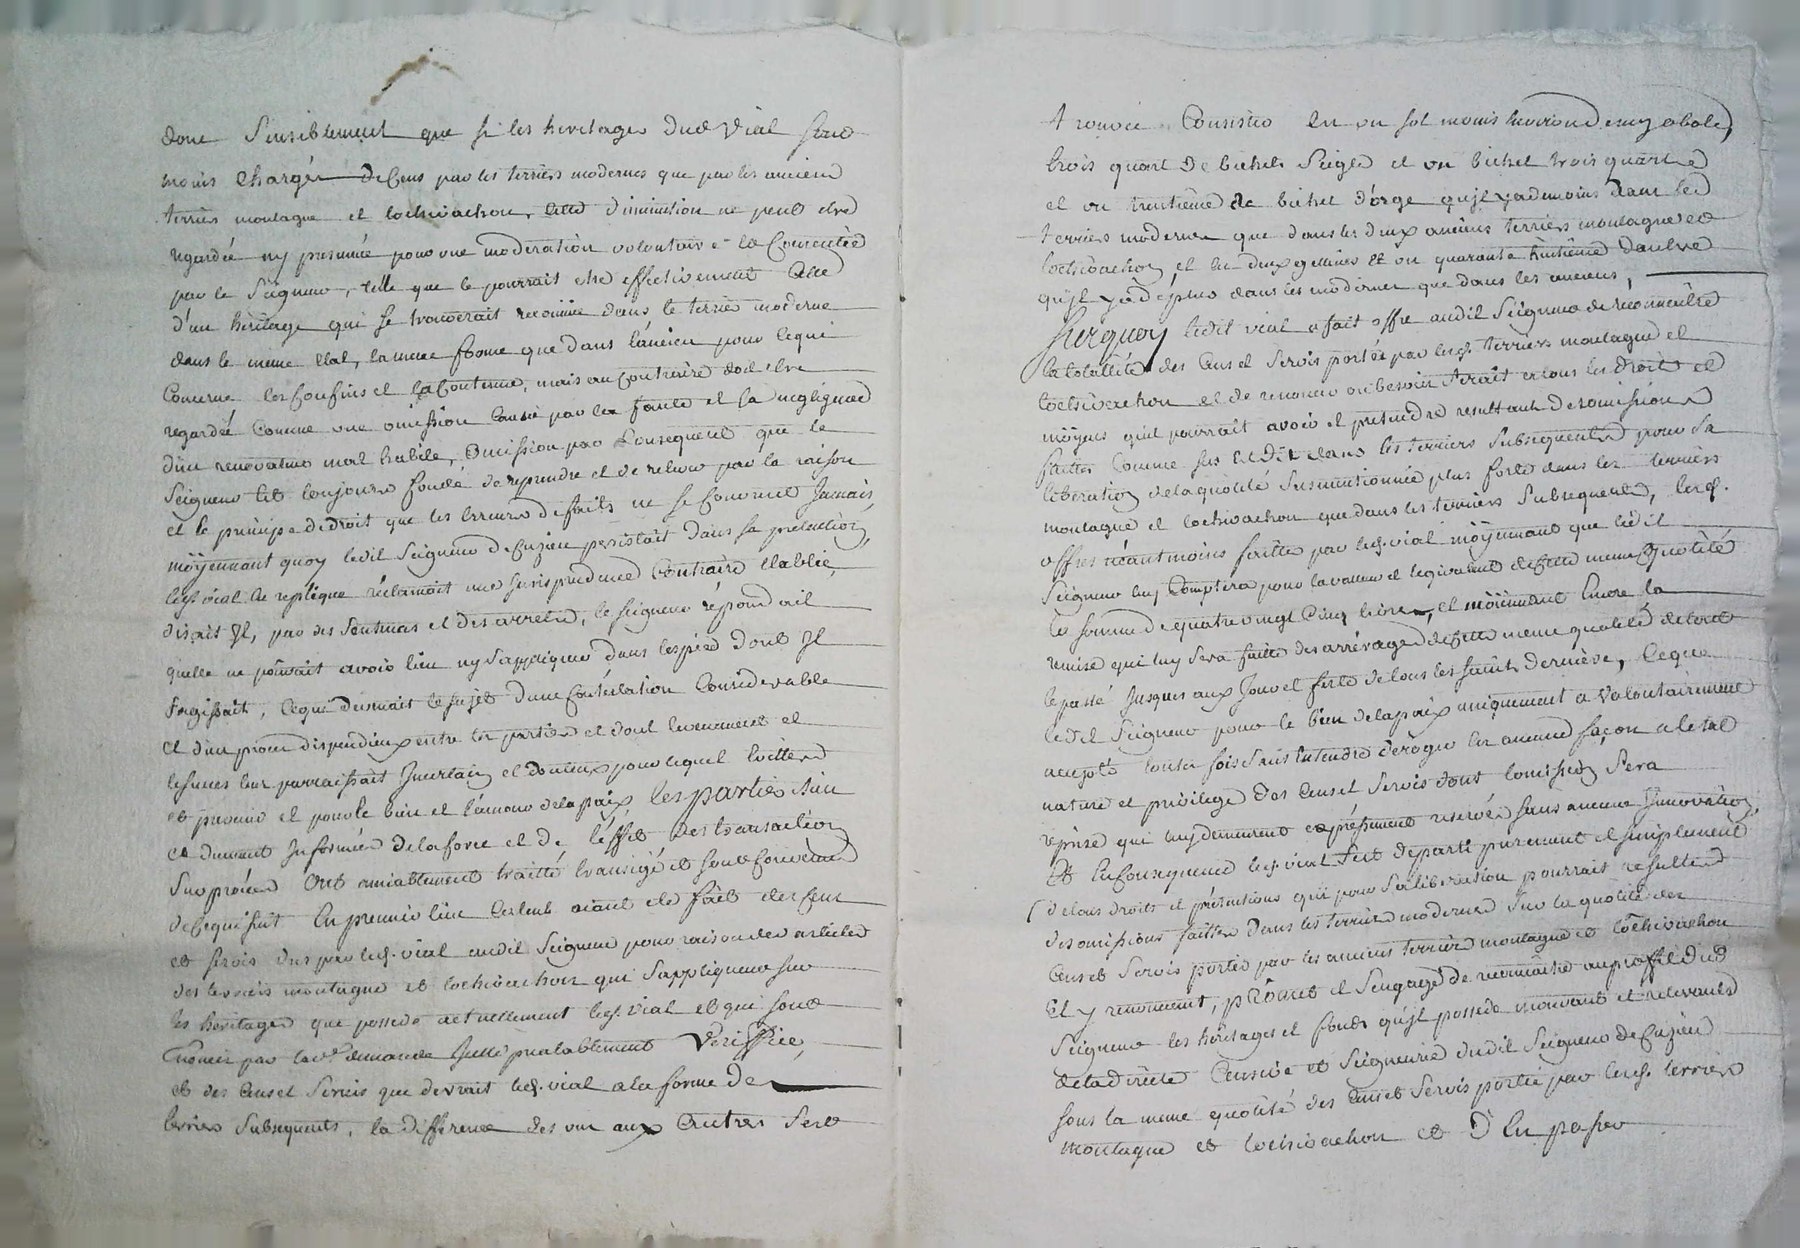 donc sensiblement que si les heritages dud Vial sont
moins chargés de Cens par les terriers modernes que par les anciens
terriers montagne et lochivachon, cette diminution ne peut etre
regardée ny presumée pour une moderation volontaire
par le Seigneur, telle que le pourrait etre effectivement celle
d'un heritage qui se trouverait reconnu dans le terrier moderne
dans le meme etat, la meme forme que dans l'ancien pour ce qui
Concerne les Confins et la Contenue, mais au Contraire doit etre
regardée Comme une omission Causée par la faute et la negligence
d'un renovateur mal habile, omission par Consequent que le
Seigneur est toujours fondé de reprendre et de relever par la raison
et le principe de droit que les Erreurs de faits ne se Couvrent Jamais,
möyennant quoy ledit Seigneur de Cuzieu persistait dans sa pretention,
led. vial en replique réclamait une Jurisprudence Contraire Etablie,
disait Jl, par des Sentences et des arrets, le seigneur répondait
quelle ne pouvait avoir lieu ny S'appliquer dans l'espèce dont Jl
S'agissait, Ce qui devenait le sujet d'une Contestation Considerable
et d'un procès dispendieux entre les parties et dont l'evenement et
le succes leur parraissait Jncertain et douteux pour lequel Eviter
et prevenir et pour le bien et l'amour de la paix les parties bien
et duement Jnformées de la force et de l'éffet des transactions
Sur procès Ont amiablement traitté transigé et sont Convenues
de Ce qui suit En premier lieu aiant ete fait des Cens
et servis dus par led. vial audit Seigneur pour raison des articles
des terriers montagne et lochivachon qui s'appliquent sur
les héritages que possede actuellement led. vial et qui sont
Enoncés par lad. demande Jcelle prealablement Vériffiée,
et des Cens et Servis que devrait led. vial a la forme des
terriers Subsequents, la difference des uns aux autres S'est
trouvée Consister En un sol moins obole,
trois quart de bichet Seigle et un bichet trois quarts
et un trentième de bichet d'orge qu'jl y a de moins dans les
terriers modernes que dans les deux anciens terriers montagne et
lochivachon, et En deux gelines et un quarante huitieme d'autre
qu'jl y a de plus dans les modernes que dans les anciens,
Surquoy ledit vial a fait offre audit Seigneur de reconnoitre
la totallité des Cens et Servis portés par lesd. terriers montagne et
lochivachon et de renoncer ou besoin serait a tous les droits et
möyens qu'il pourrait avoir et pretendre resultants des omissions
faittes Comme sus Est dit dans les terriers Subsequents pour sa
liberation de la quotité susmentionnée plus forte dans les terriers
montagne et lochivachon que dans les terriers Subsequents, lesd.
offres néantmoins faittes par led. vial möyennant que ledit
Seigneur luy Comptera pour la valeur et l'equivalent de Cette meme Quotité
la somme de quatre vingt Cinq livres, et möiennant Encore la
remise qui luy sera faitte des arrérages de Cette meme quotité de tout
le passé Jusques aux Jour et feste de tous les saints derniere, Ce que
ledit Seigneur pour le bien de la paix uniquement a volontairement
accepté toutes fois sans Entendre déroger En aucune façon a letat
nature et privilege des Cens et Servis dont l'omission sera
réprise qui luy demeurent expressément reservés sans aucune Jnnovation,
Et En Consequence led. vial s'est départi purement et simplement
de tous droits et prétentions qui pour sa liberation pourrait résulter
des omissions faittes dans les terriers modernes sur la quotité des
Cens et Servis portés par les anciens terriers montagne et lochivachon
Et y renonceant, promet et s'engage de reconnaitre au proffit dud
Seigneur les héritages et fonds qu'jl possede mouvants et relevants
de la directe Censive et Seigneurie dudit Seigneur de Cuzieu
sous la meme quotité des Cens et Servis portés par lesd. terriers
montagne et lochivachon et d'En passer